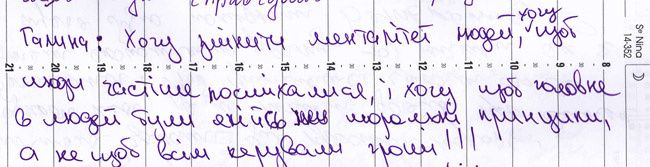 Галина: Хочу змінити менталітет людей, хочу щоб
люди частіше посміхалися, і хочу щоб головне
в людей були якійсь моральні принципи,
а не щоб всім керували гроші!!!
Sª Nina
14.352
21 20 19 18 17 16 15 14 13 12 11 10 9 8